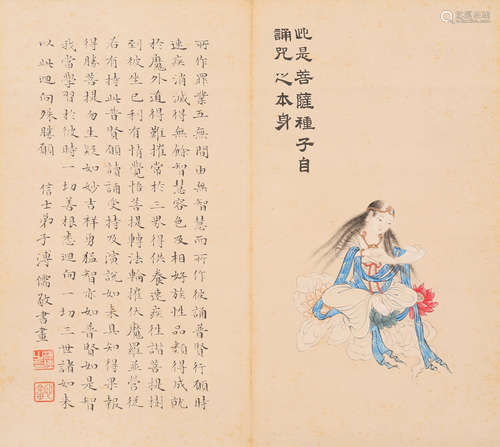 此是菩薩種子自
誦咒之本身
所作罪業五無間由無智慧而所作彼誦普賢行願時
速疾消滅得無餘智慧容色及相好族姓品類得成就
於魔外道得難摧常於三界得供養速疾往詣菩提樹
到彼坐已利有情覺悟菩提轉法輪摧伏魔羅並營從
若有持此普賢願讀誦受持及演說如來具知得果報
得勝菩提勿生疑如妙吉祥勇猛智亦如普賢如是智
我當學習於彼時一切善根悉迴向一切三世諸如來
以此迴向殊勝願 信士弟子溥儒敬書畫